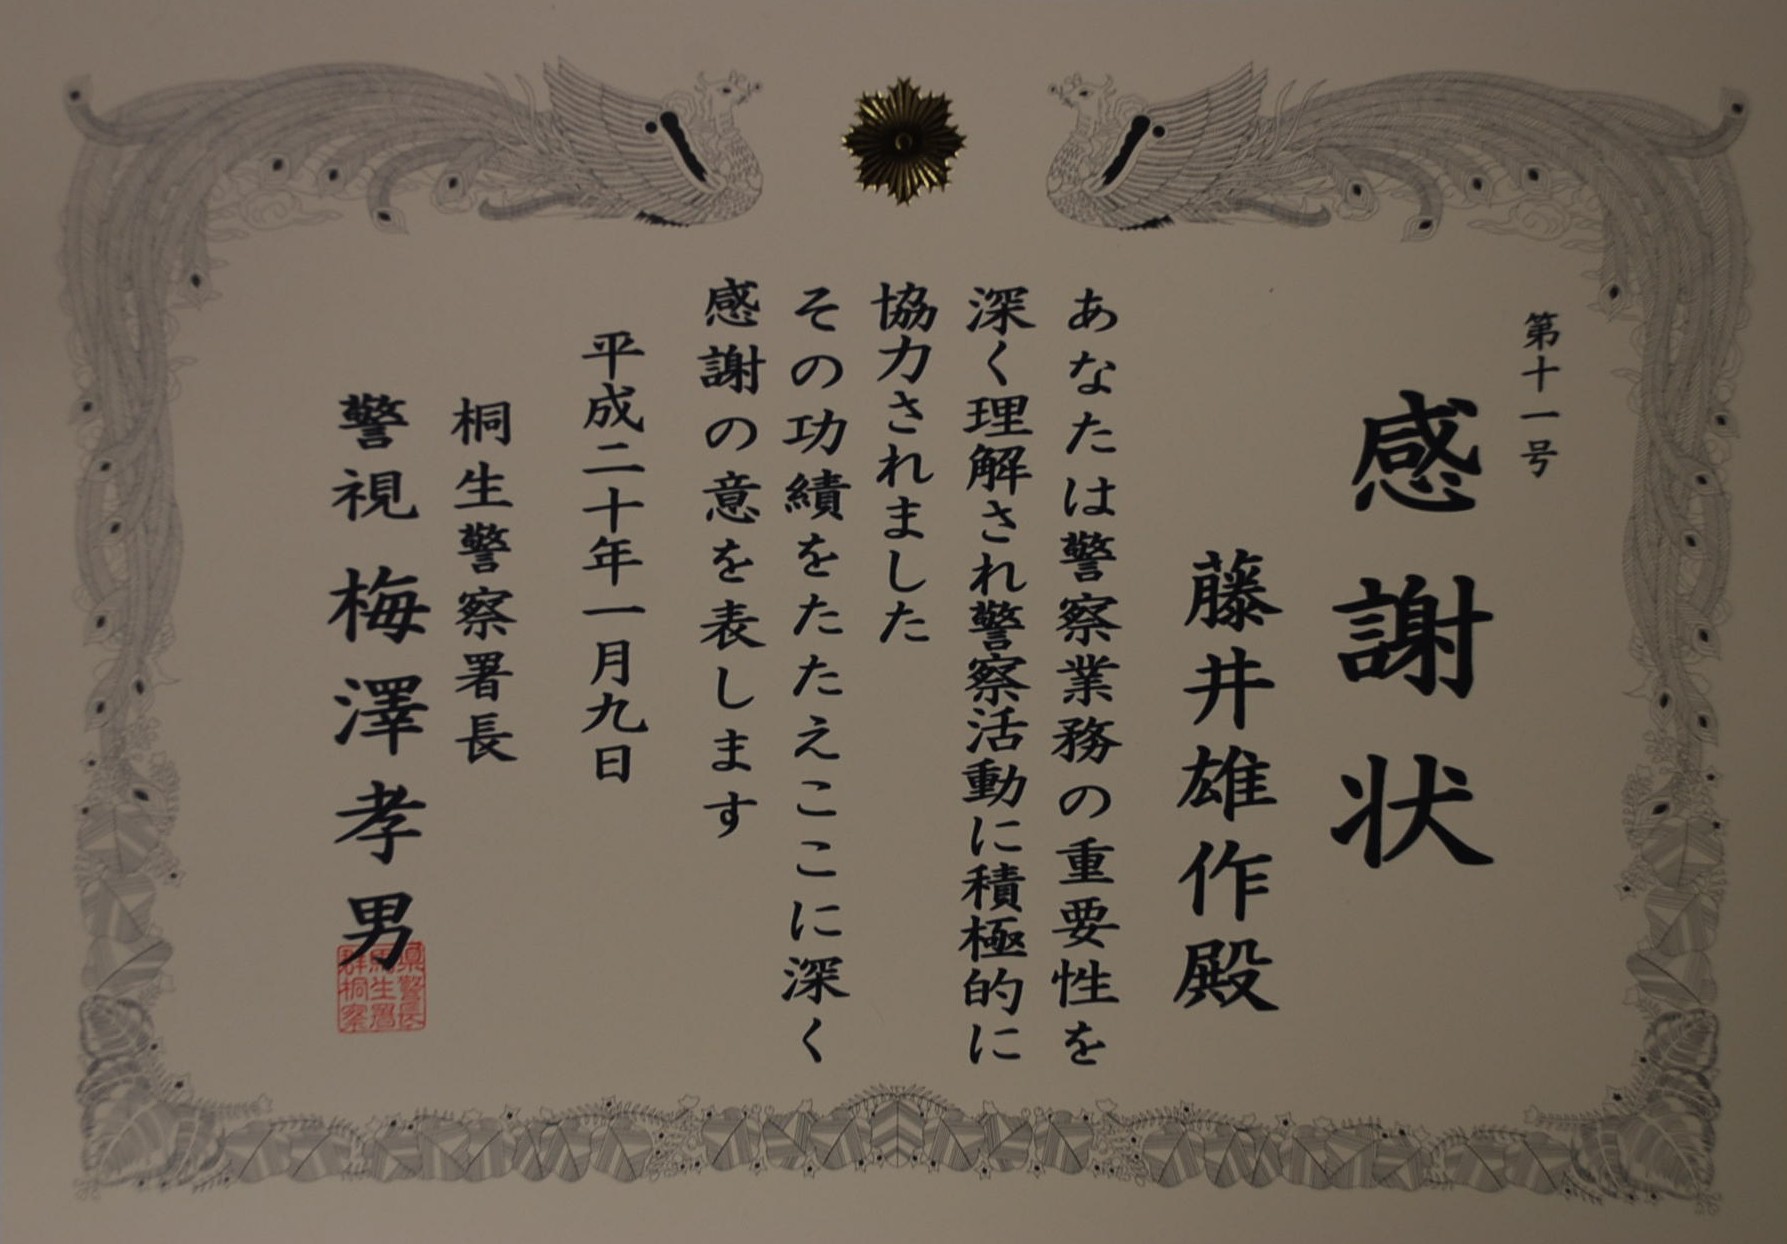 第十一号
感謝状
藤井雄作殿
あなたは警察業務の重要性を
深く理解され警察活動に積極的に
協力されました
その功績をたたえここに深く
感謝の意を表します
平成二十年一月九日
桐生警察署長
警視 梅澤孝男
群馬県桐生警察署長